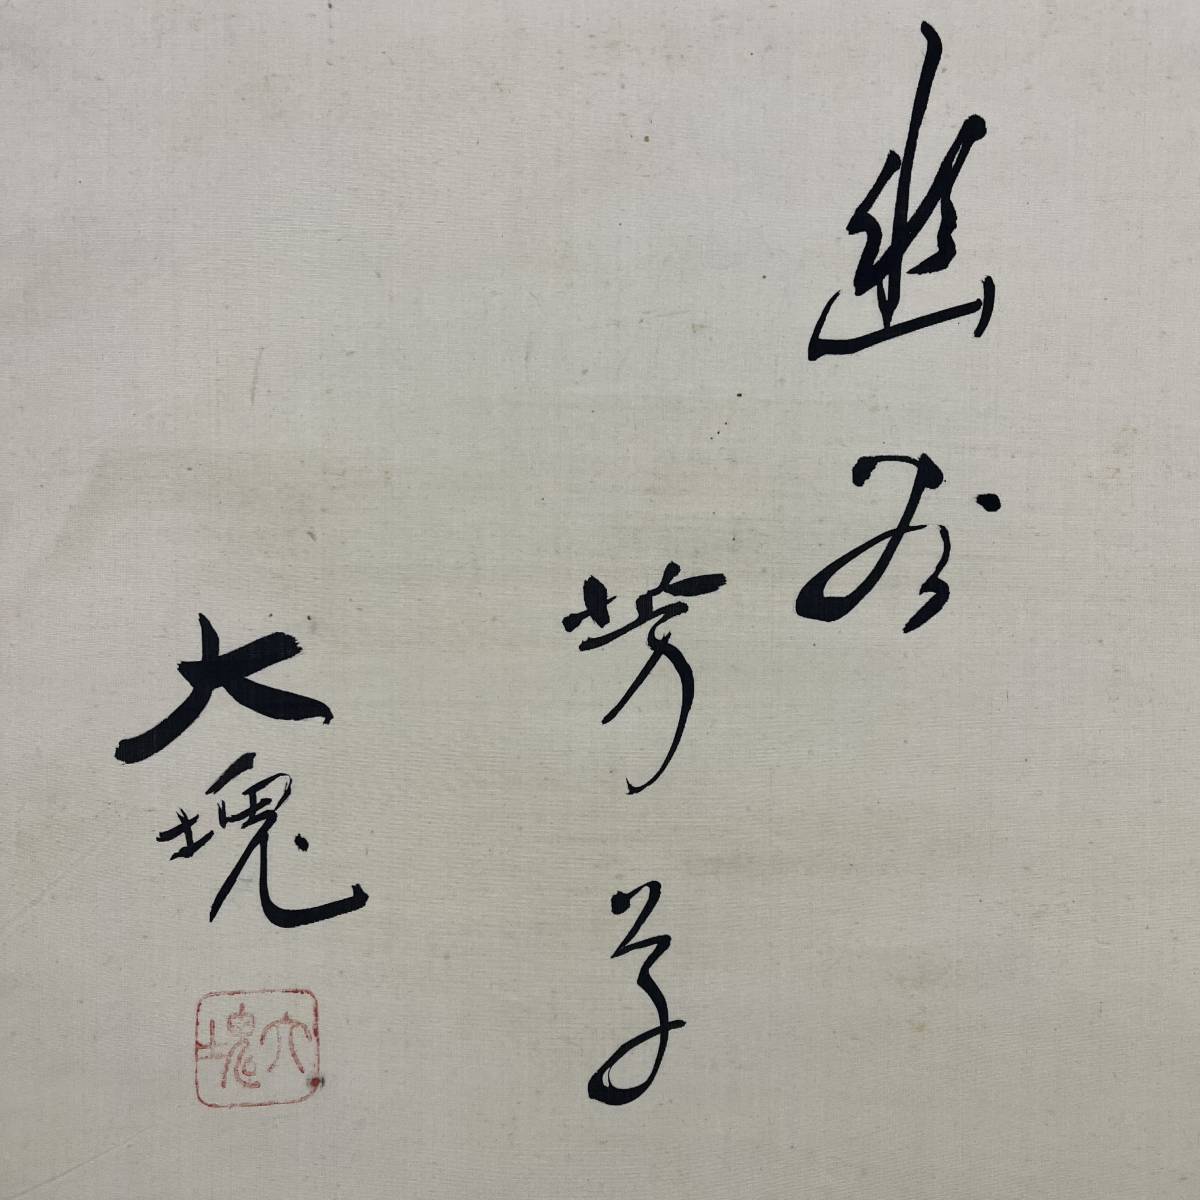 幽谷
芳草
大塊
大塊